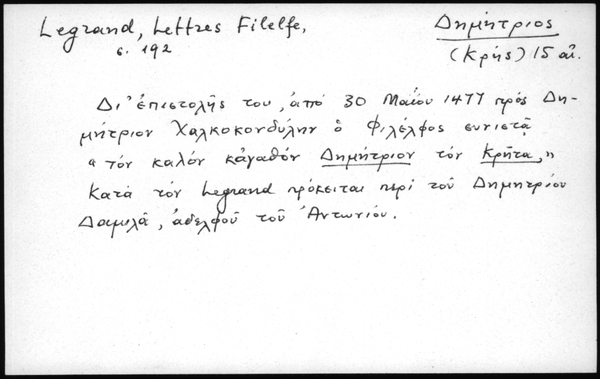 Legrand, Lettres Filelfe,
σ. 192
Δημήτριος
(Κρής) 15 αἰ.
Δι' ἐπιστολῆς του, ἀπό 30 Μαΐου 1477 πρός Δη-
μήτριον Χαλκοκονδύλην ὁ Φιλέλφος συνιστᾷ
"τόν καλόν κἀγαθόν Δημήτριον τόν Κρῆτα,"
Κατά τόν Legrand πρόκειται περί τοῦ Δημητρίου
Δαμιλᾶ, ἀδελφοῦ τοῦ Ἀντωνίου.